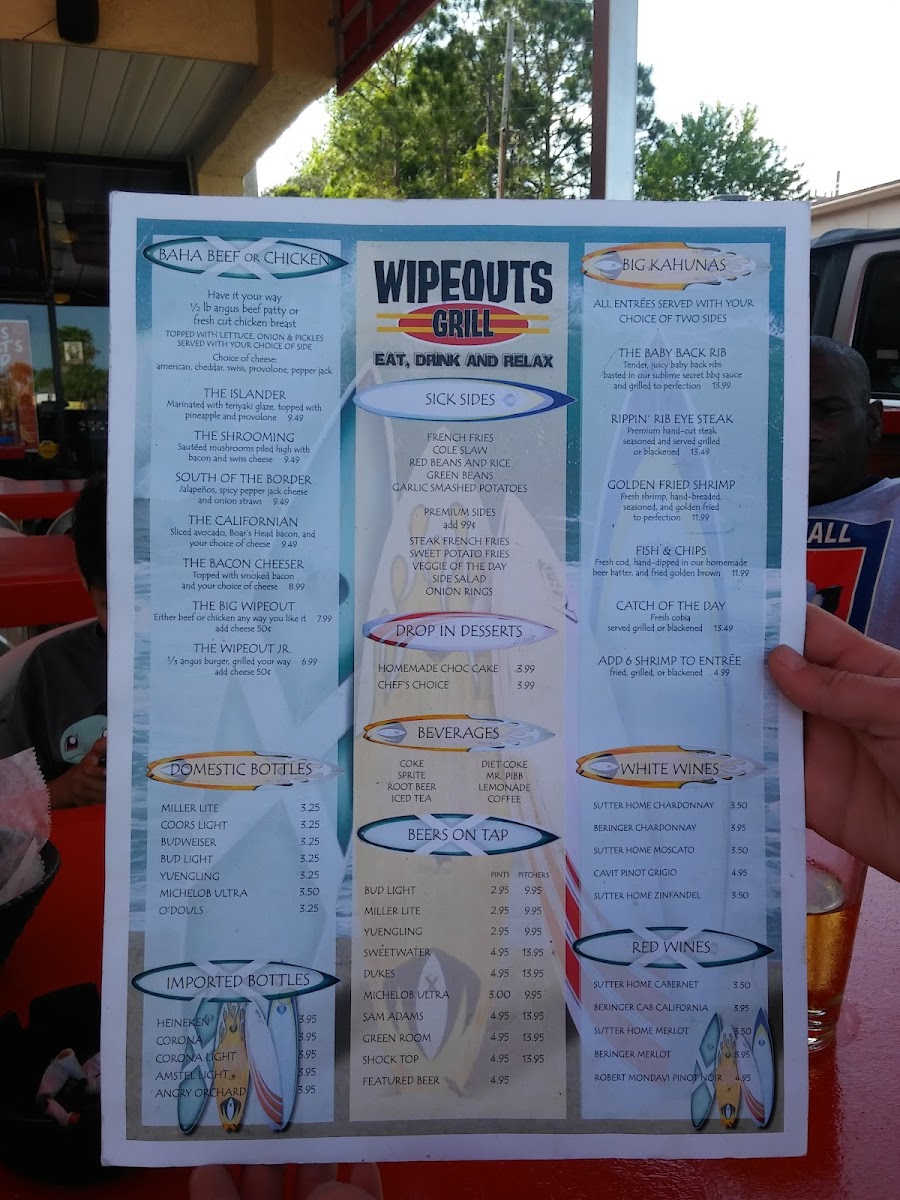 BAHA BEEF OR CHICKEN
Have it your way
½ lb angus beef patty or
fresh cut chicken breast
TOPPED WITH LETTUCE, ONION & PICKLES
SERVED WITH YOUR CHOICE OF SIDE
Choice of cheese:
american, cheddar, swiss, provolone, pepper jack
THE ISLANDER
Marinated with teriyaki glaze, topped with
pineapple and provolone 9.49
THE SHROOMING
Sautéed mushrooms piled high with
bacon and swiss cheese 9.49
SOUTH OF THE BORDER
Jalapeños, spicy pepper jack cheese
and onion straws 9.49
THE CALIFORNIAN
Sliced avocado, Boar's Head bacon, and
your choice of cheese 9.49
THE BACON CHEESER
Topped with smoked bacon
and your choice of cheese 8.99
THE BIG WIPEOUT
Either beef or chicken any way you like it 7.99
add cheese 50¢
THE WIPEOUT JR.
⅓ angus burger, grilled your way 6.99
add cheese 50¢
DOMESTIC BOTTLES
MILLER LITE 3.25
COORS LIGHT 3.25
BUDWEISER 3.25
BUD LIGHT 3.25
YUENGLING 3.25
MICHELOB ULTRA 3.50
O'DOULS 3.25
IMPORTED BOTTLES
HEINEKEN 3.95
CORONA 3.95
CORONA LIGHT 3.95
AMSTEL LIGHT 3.95
ANGRY ORCHARD 3.95
WIPEOUTS
GRILL
EAT, DRINK AND RELAX
SICK SIDES
FRENCH FRIES
COLE SLAW
RED BEANS AND RICE
GREEN BEANS
GARLIC SMASHED POTATOES
PREMIUM SIDES
add 99¢
STEAK FRENCH FRIES
SWEET POTATO FRIES
VEGGIE OF THE DAY
SIDE SALAD
ONION RINGS
DROP IN DESSERTS
HOMEMADE CHOC CAKE 3.99
CHEF'S CHOICE 3.99
BEVERAGES
COKE DIET COKE
SPRITE MR. PIBB
ROOT BEER LEMONADE
ICED TEA COFFEE
BEERS ON TAP
PINTS PITCHERS
BUD LIGHT 2.95 9.95
MILLER LITE 2.95 9.95
YUENGLING 2.95 9.95
SWEETWATER 4.95 13.95
DUKES 4.95 13.95
MICHELOB ULTRA 3.00 9.95
SAM ADAMS 4.95 13.95
GREEN ROOM 4.95 13.95
SHOCK TOP 4.95 13.95
FEATURED BEER 4.95
BIG KAHUNAS
ALL ENTRÉES SERVED WITH YOUR
CHOICE OF TWO SIDES
THE BABY BACK RIB
Tender, juicy baby back ribs
basted in our sublime secret bbq sauce
and grilled to perfection 13.99
RIPPIN' RIB EYE STEAK
Premium hand-cut steak
seasoned and served grilled
or blackened 13.49
GOLDEN FRIED SHRIMP
Fresh shrimp, hand-breaded,
seasoned, and golden fried
to perfection 11.99
FISH & CHIPS
Fresh cod, hand-dipped in our homemade
beer batter, and fried golden brown 11.99
CATCH OF THE DAY
Fresh cobia
served grilled or blackened 13.49
ADD 6 SHRIMP TO ENTRÉE
fried, grilled, or blackened 4.99
WHITE WINES
SUTTER HOME CHARDONNAY 3.50
BERINGER CHARDONNAY 3.95
SUTTER HOME MOSCATO 3.50
CAVIT PINOT GRIGIO 4.95
SUTTER HOME ZINFANDEL 3.50
RED WINES
SUTTER HOME CABERNET 3.50
BERINGER CAB CALIFORNIA 3.95
SUTTER HOME MERLOT 3.50
BERINGER MERLOT 3.95
ROBERT MONDAVI PINOT NOIR 4.95
ALL